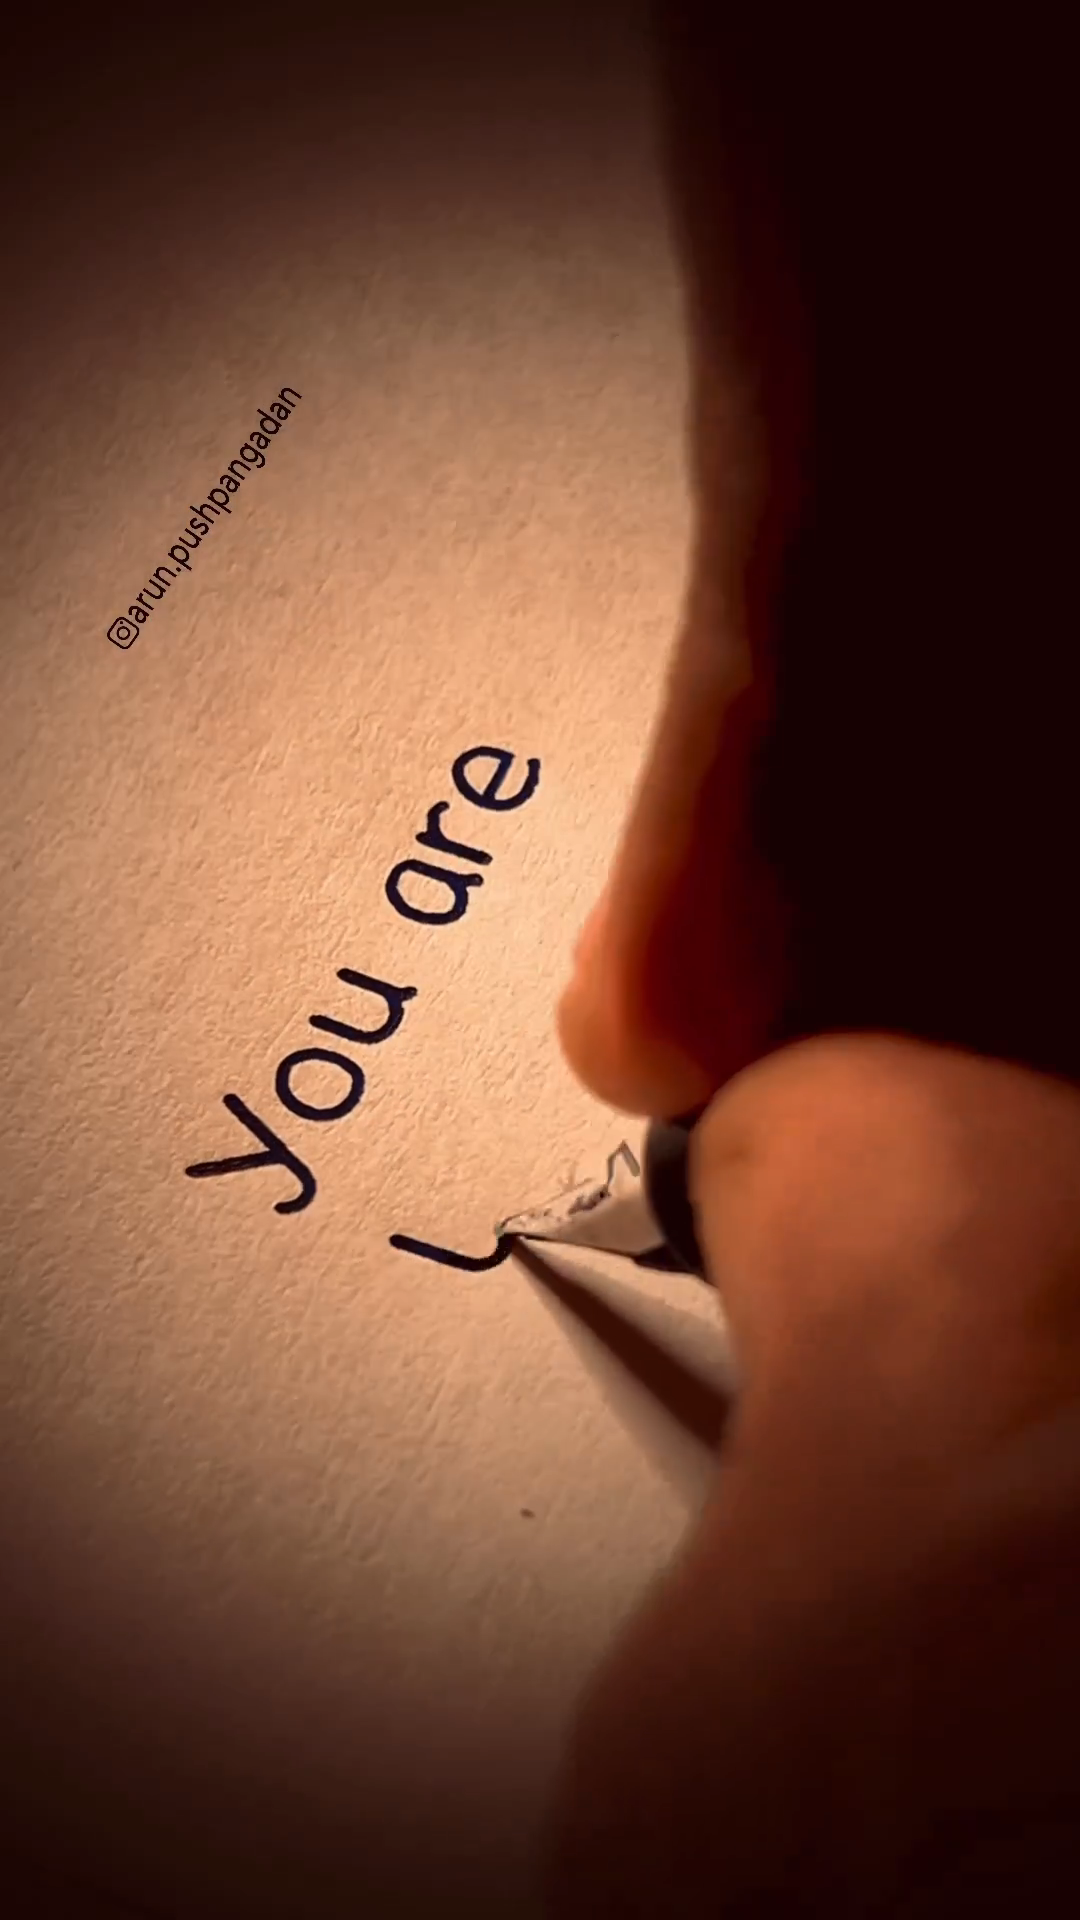 arun.pushpangadan
You are